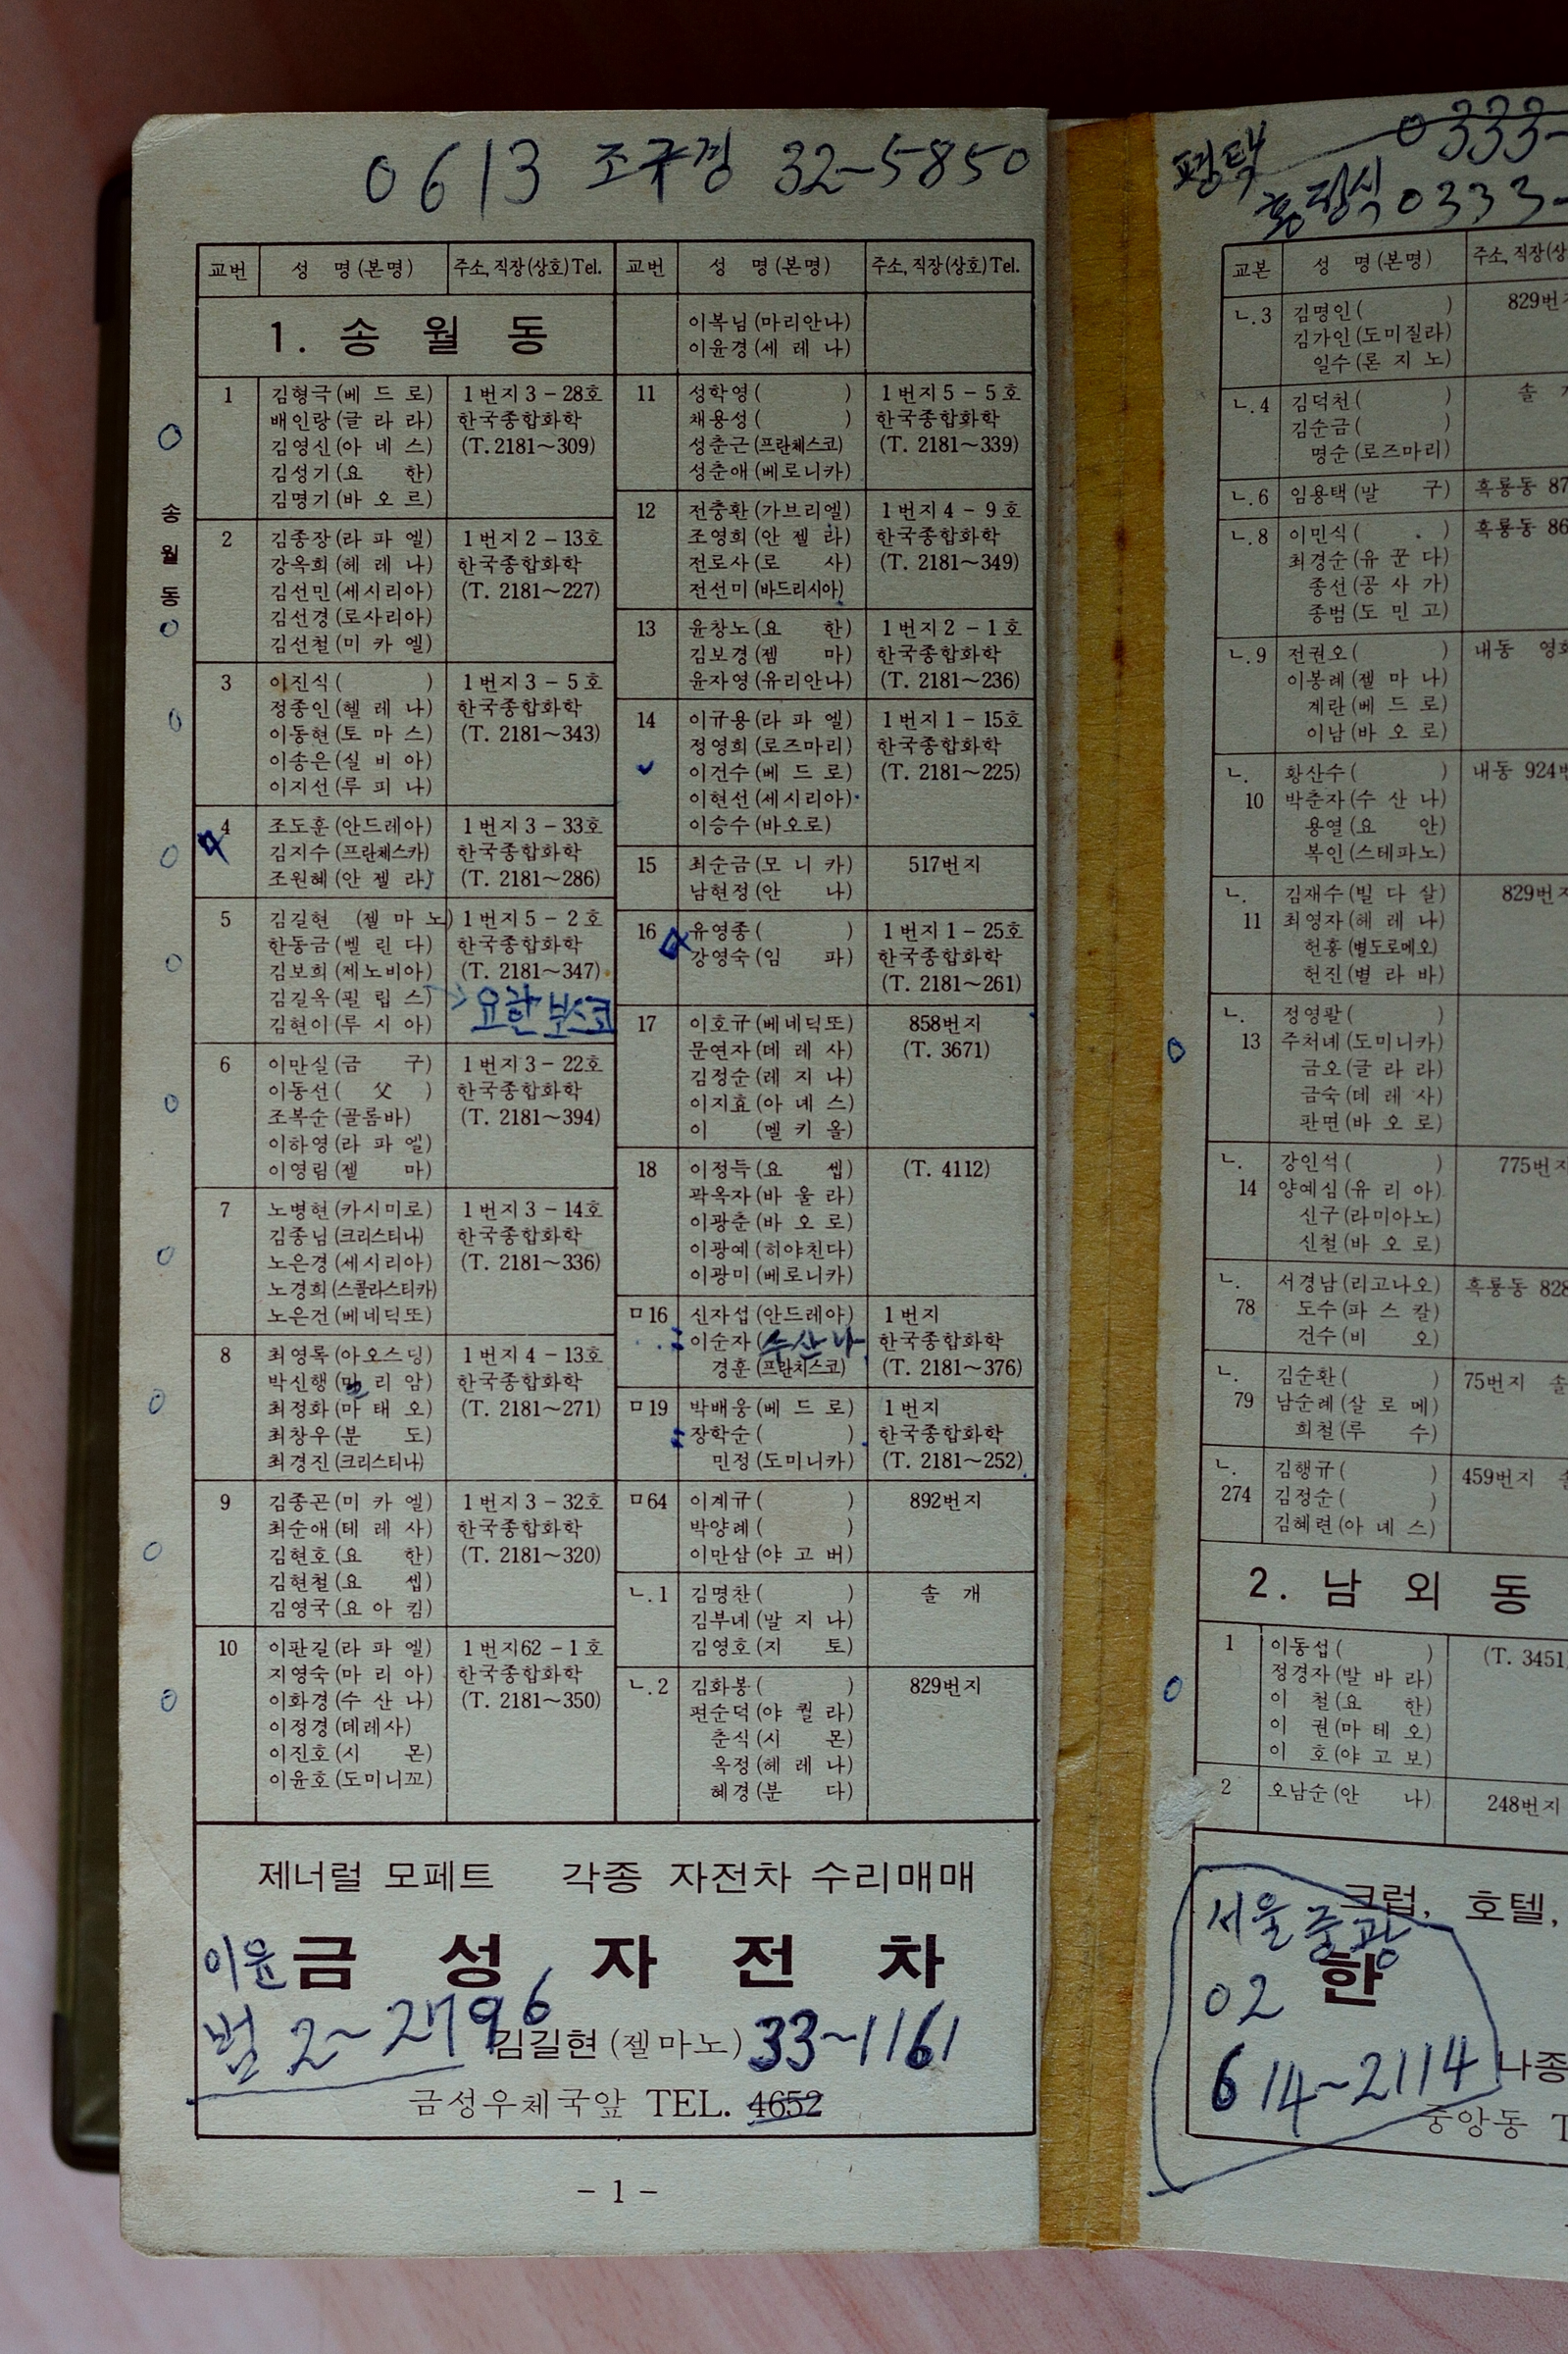 0613 조규경 32~5850
교번 성 명(본명) 주소, 직장(상호)Tel.
1. 송 월 동
송월동
1 김형극(베 드 로) 1번지 3-28호
배인랑(글 라 라) 한국종합화학
김영신(아 네 스) (T. 2181~309)
김성기(요 한)
김명기(바 오 르)
2 김종장(라 파 엘) 1번지 2-13호
강옥희(헤 레 나) 한국종합화학
김선민(세시리아) (T. 2181~227)
김선경(로사리아)
김선철(미 카 엘)
3 이진식( ) 1번지 3-5호
정종인(헬 레 나) 한국종합화학
이동현(토 마 스) (T. 2181~343)
이송은(실 비 아)
이지선(루 피 나)
4 조도훈(안드레아) 1번지 3-33호
김지수(프란체스카) 한국종합화학
조원혜(안 젤 라) (T. 2181~286)
5 김길현 (젤 마 노) 1번지 5-2호
한동금(벨 린 다) 한국종합화학
김보희(제노비아) (T. 2181~347)
김길옥(필 립 스) → 요한 보스코
김현이(루 시 아)
6 이만실(금 구) 1번지 3-22호
이동선( 父 ) 한국종합화학
조복순(골롬바) (T. 2181~394)
이하영(라 파 엘)
이영림(젤 마)
7 노병현(카시미로) 1번지 3-14호
김종님(크리스티나) 한국종합화학
노은경(세시리아) (T. 2181~336)
노경희(스콜라스티카)
노은건(베네딕또)
8 최영록(아오스딩) 1번지 4-13호
박신행( 리 암) 한국종합화학
최정화(마 태 오) (T. 2181~271)
최창우(분 도)
최경진(크리스티나)
9 김종곤(미 카 엘) 1번지 3-32호
최순애(테 레 사) 한국종합화학
김현호(요 한) (T. 2181~320)
김현철(요 셉)
김영국(요 아 킴)
10 이판길(라 파 엘) 1번지62-1호
지영숙(마 리 아) 한국종합화학
이화경(수 산 나) (T. 2181~350)
이정경(데레사)
이진호(시 몬)
이윤호(도미니꼬)
교번 성 명(본명) 주소, 직장(상호)Tel.
이복님(마리안나)
이윤경(세 레 나)
11 성학영( ) 1번지 5-5호
채용성( ) 한국종합화학
성춘근(프란체스코) (T. 2181~339)
성춘애(베로니카)
12 전충환(가브리엘) 1번지 4-9호
조영희(안 젤 라) 한국종합화학
전로사(로 사) (T. 2181~349)
전선미(바드리시아)
13 윤창노(요 한) 1번지 2-1호
김보경(젬 마) 한국종합화학
윤자영(유리안나) (T. 2181~236)
14 이규용(라 파 엘) 1번지 1-15호
정영희(로즈마리) 한국종합화학
이건수(베 드 로) (T. 2181~225)
이현선(세시리아)
이승수(바오로)
15 최순금(모 니 카) 517번지
남현정(안 나)
16 유영종( ) 1번지 1-25호
강영숙(임 파) 한국종합화학
(T. 2181~261)
17 이호규(베네딕또) 858번지
문연자(데 레 사) (T. 3671)
김정순(레 지 나)
이지효(아 녜 스)
이 (멜 키 올)
18 이정득(요 셉) (T. 4112)
곽옥자(바 울 라)
이광춘(바 오 로)
이광예(히야친다)
이광미(베로니카)
ㅁ16 신자섭(안드레아) 1번지
이순자(수산나 한국종합화학
경훈(프란치스코) (T. 2181~376)
ㅁ19 박배웅(베 드 로) 1번지
장학순( ) 한국종합화학
민정(도미니카) (T. 2181~252)
ㅁ64 이계규( ) 892번지
박양례( )
이만삼(야 고 버)
ㄴ.1 김명찬( ) 솔 개
김부녜(말 지 나)
김영호(지 토)
ㄴ.2 김화봉( ) 829번지
편순덕(야 퀼 라)
춘식(시 몬)
옥정(헤 레 나)
혜경(분 다)
제너럴 모페트 각종 자전차 수리매매
금 성 자 전 차
이윤범 2~2796
김길현(젤마노) 33~1161
금성우체국앞 TEL. 4652
- 1 -
평택 0333-
홍장식 0333-
교본 성 명(본명) 주소, 직장(상
ㄴ.3 김명인( ) 829번
김가인(도미질라)
일수(론 지 노)
ㄴ.4 김덕천( ) 솔
김순금( )
명순(로즈마리)
ㄴ.6 임용택(말 구) 흑룡동 87
ㄴ.8 이민식( ) 흑룡동 86
최경순(유 꾼 다)
종선(공 사 가)
종범(도 민 고)
ㄴ.9 전권오( ) 내동
이봉례(젤 마 나)
계란(베 드 로)
이남(바 오 로)
ㄴ.10 황산수( ) 내동 924
박춘자(수 산 나)
용열(요 안)
복인(스테파노)
ㄴ.11 김재수(빌 다 살) 829번
최영자(헤 레 나)
헌홍(별도로메오)
헌진(별 라 바)
ㄴ.13 정영팔( )
주처녜(도미니카)
금오(글 라 라)
금숙(데 레 사)
판면(바 오 로)
ㄴ.14 강인석( ) 775번
양예심(유 리 아)
신구(라미아노)
신철(바 오 로)
ㄴ.78 서경남(리고나오) 흑룡동 828
도수(파 스 칼)
건수(비 오)
ㄴ.79 김순환( ) 75번지 솔
남순례(살 로 메)
희철(루 수)
ㄴ.274 김행규( ) 459번지
김정순( )
김혜련(아 녜 스)
2. 남 외 동
1 이동섭( ) (T. 3451
정경자(발 바 라)
이 철(요 한)
이 권(마 테 오)
이 호(야 고 보)
2 오남순(안 나) 248번지
크럽, 호텔,
서울 중광
한
02
614~2114
나종
중앙동 T